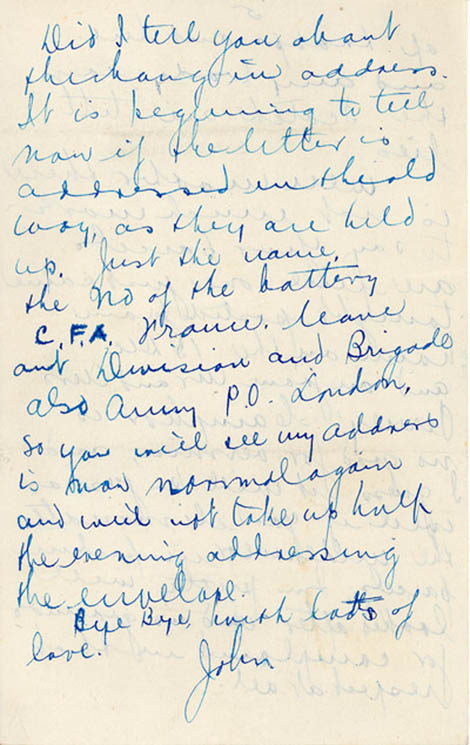 Did I tell you about
the chang in address.
It is beginning to tell
now if the letter is
addressed in the old
way, as they are held
up. Just the name,
the No of the battery
C.F.A. France. leave
out Division and Brigade
also Army P.O. London,
so you will see my address
is now normal again
and will not take up half
the evening addressing
the envelope.
Bye Bye, with lots of
love.
John